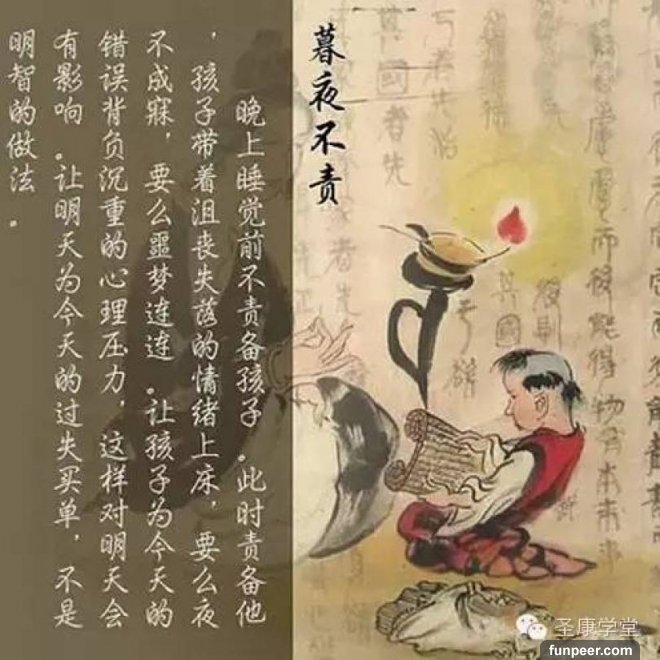 暮夜不责
晚上睡觉前不责备孩子。此时责备他
，孩子带着沮丧失落的情绪上床，要么夜
不成寐，要么噩梦连连。让孩子为今天的
错误背负沉重的心理压力，这样对明天会
有影响。让明天为今天的过失买单，不是
明智的做法。
而後能得物有本末事
國者先
其國
圣康学堂
funpeer.com